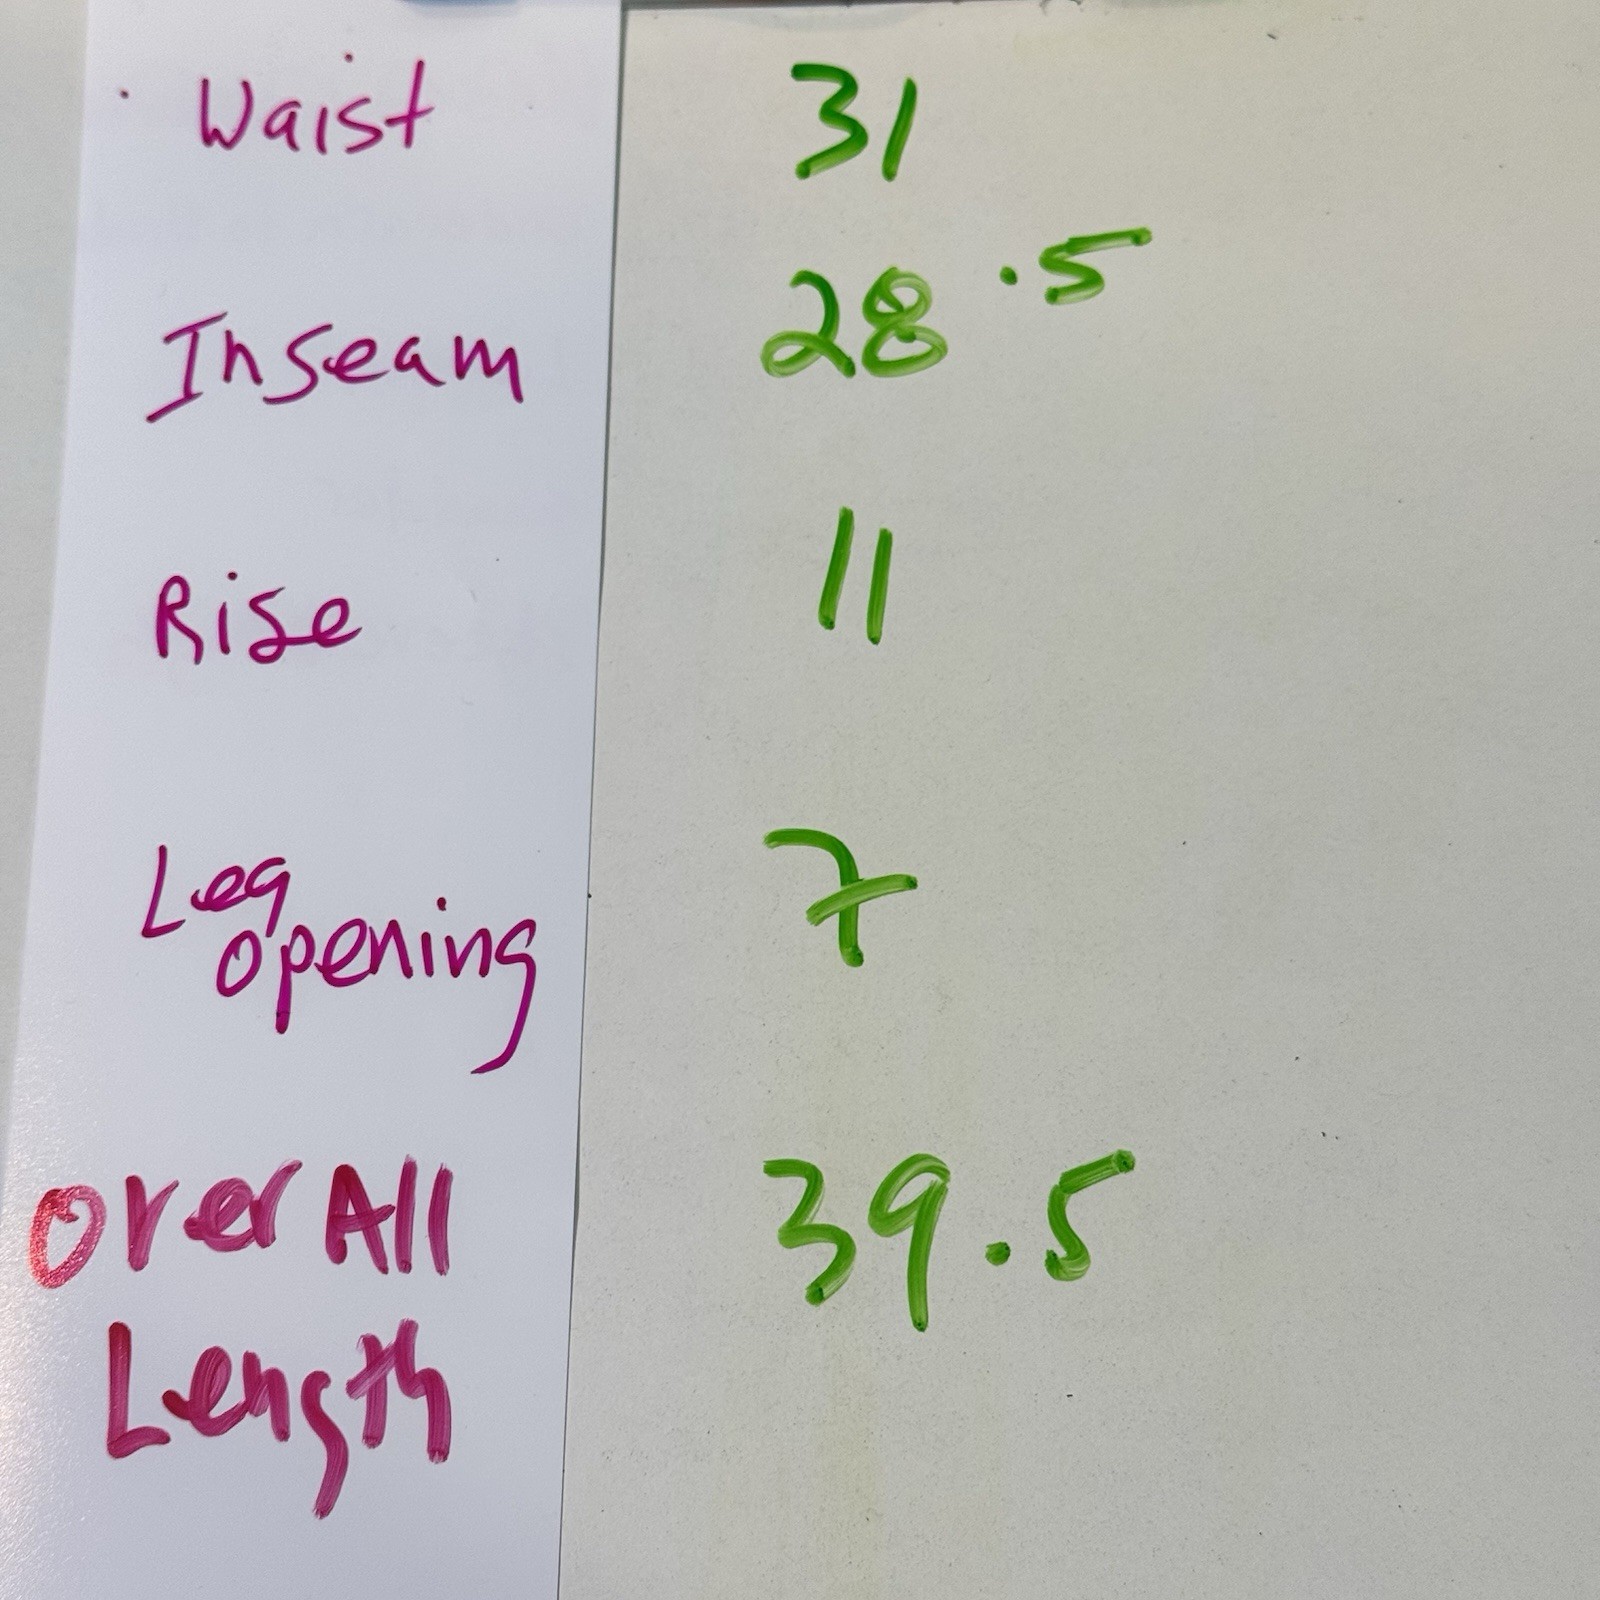 Waist 31
Inseam 28.5
Rise 11
Leg opening 7
OverAll 39.5
Length